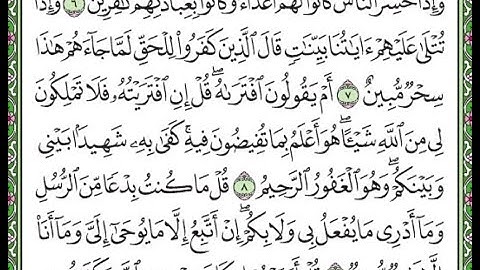 وَإِذَا حُشِرَ ٱلنَّاسُ كَانُوا۟ لَهُمْ أَعْدَآءً وَكَانُوا۟ بِعِبَادَتِهِمْ كَٰفِرِينَ ٦ وَإِذَا
تُتْلَىٰ عَلَيْهِمْ ءَايَٰتُنَا بَيِّنَٰتٍ قَالَ ٱلَّذِينَ كَفَرُوا۟ لِلْحَقِّ لَمَّا جَآءَهُمْ هَٰذَا
سِحْرٌ مُّبِينٌ ٧ أَمْ يَقُولُونَ ٱفْتَرَىٰهُ ۖ قُلْ إِنِ ٱفْتَرَيْتُهُۥ فَلَا تَمْلِكُونَ
لِى مِنَ ٱللَّهِ شَيْـًٔا ۖ هُوَ أَعْلَمُ بِمَا تُفِيضُونَ فِيهِ ۖ كَفَىٰ بِهِۦ شَهِيدًۢا بَيْنِى
وَبَيْنَكُمْ ۖ وَهُوَ ٱلْغَفُورُ ٱلرَّحِيمُ ٨ قُلْ مَا كُنتُ بِدْعًا مِّنَ ٱلرُّسُلِ
وَمَآ أَدْرِى مَا يُفْعَلُ بِى وَلَا بِكُمْ ۖ إِنْ أَتَّبِعُ إِلَّا مَا يُوحَىٰٓ إِلَىَّ وَمَآ أَنَا۠